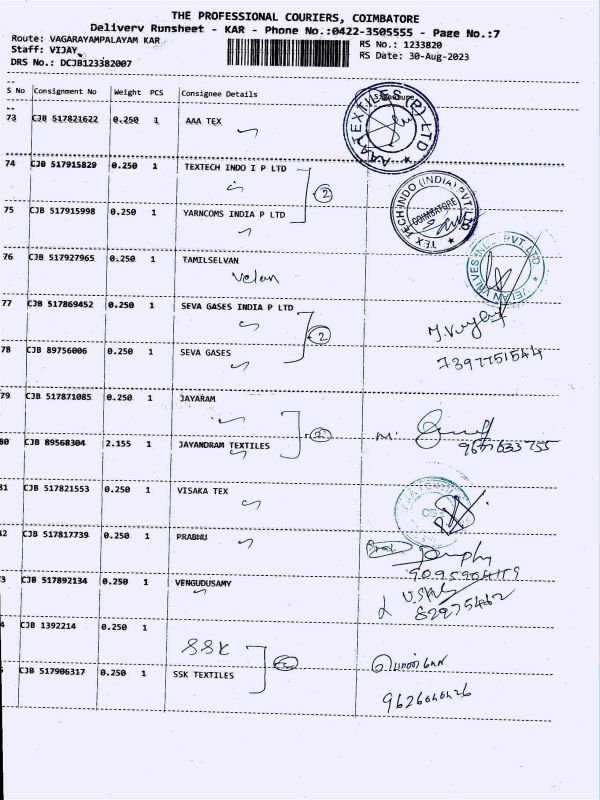 THE PROFESSIONAL COURIERS, COIMBATORE
Delivery Runsheet - KAR - Phone No.:0422-3505555 - Page No.:7
Route: VAGARAYAMPALAYAM KAR
RS No.: 1233820
Staff: VIJAY
RS Date: 30-Aug-2023
DRS No.: DCJB123382007
S No Consignment No Weight PCS Consignee Details
73 CJB 517821622 0.250 1 AAA TEX
AAA TEXTILES (P) LTD
74 CJB 517915829 0.250 1 TEXTECH INDO I P LTD
2
TEXTECH INDO (INDIA) PVT LTD
COIMBATORE
75 CJB 517915998 0.250 1 YARNCOMS INDIA P LTD
76 CJB 517927965 0.250 1 TAMILSELVAN
Velan
PVT LTD
77 CJB 517869452 0.250 1 SEVA GASES INDIA P LTD
2
78 CJB 89756006 0.250 1 SEVA GASES
7397751544
79 CJB 517871085 0.250 1 JAYARAM
80 CJB 89568304 2.155 1 JAYANDRAM TEXTILES
31 CJB 517821553 0.250 1 VISAKA TEX
32 CJB 517817739 0.250 1 PRABHU
3 CJB 517892134 0.250 1 VENGUDUSAMY
4 CJB 1392214 0.250 1
SSK
5 CJB 517906317 0.250 1 SSK TEXTILES